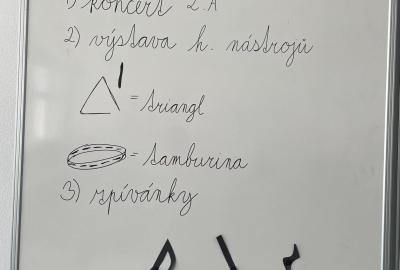 1) koncert 2.A
2) výstava h. nástrojů
= triangl
= tamburina
3) zpívánky